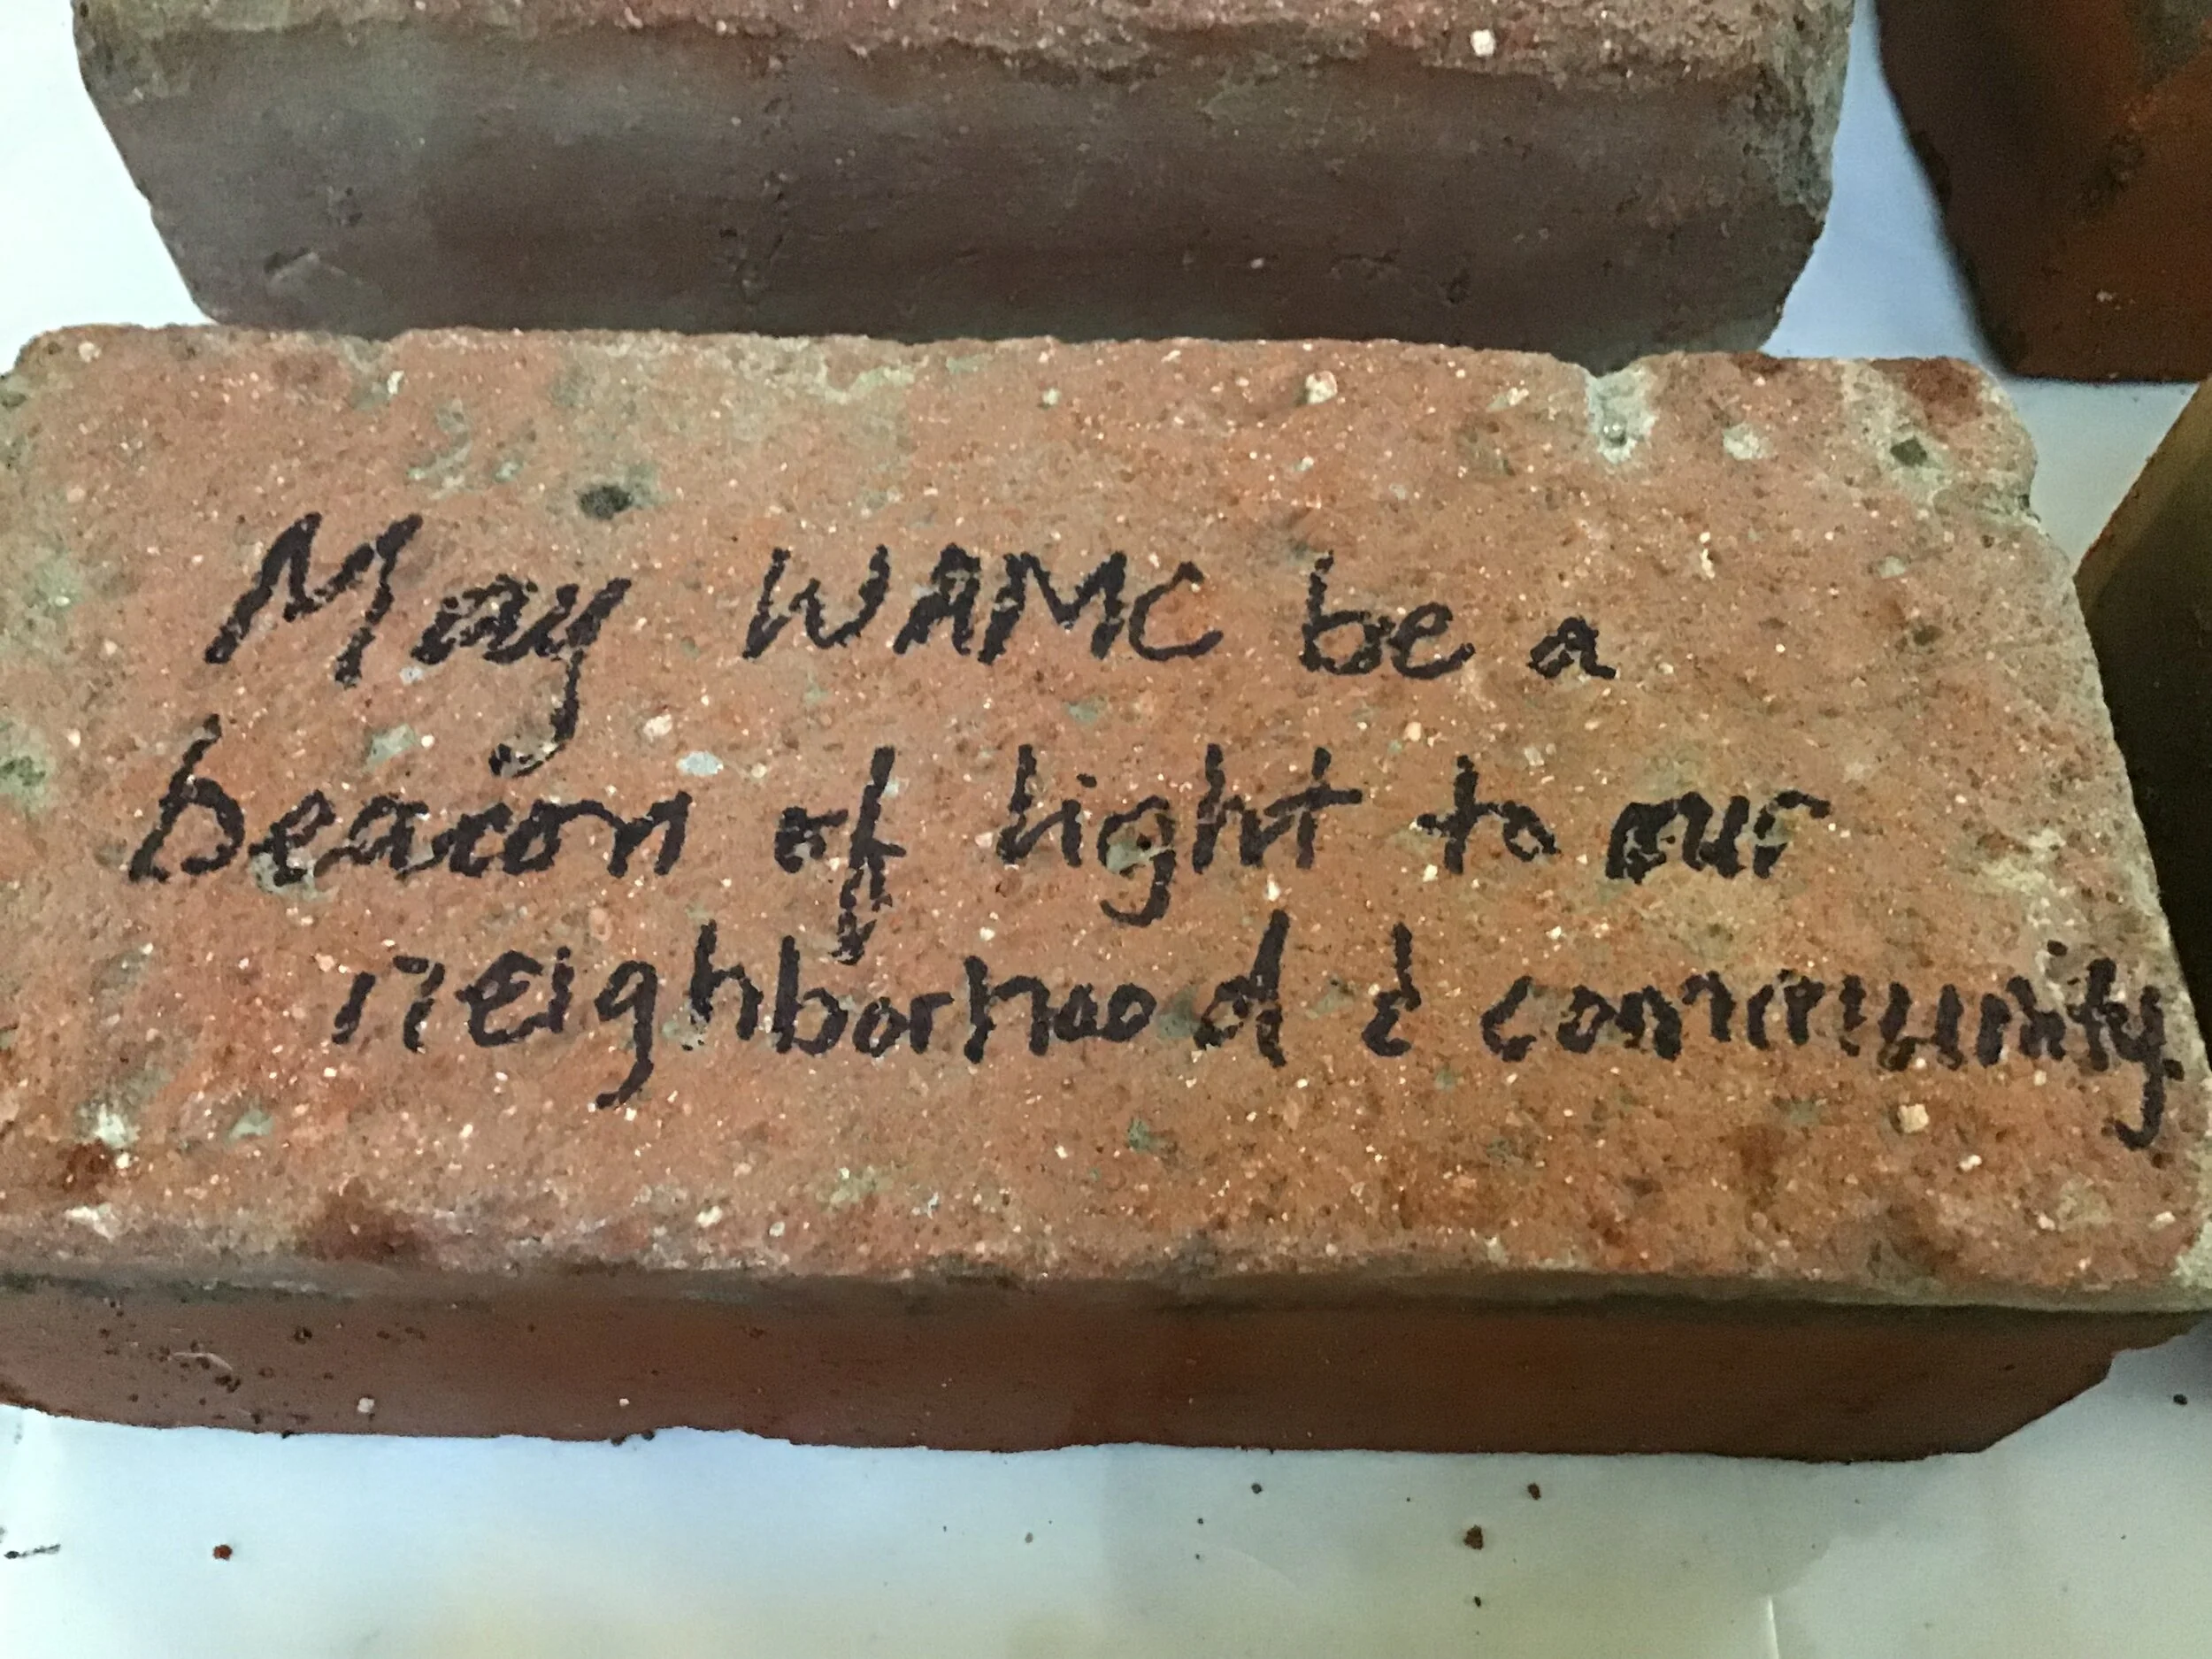 May WAMC be a
beacon of light to our
neighborhood & community.